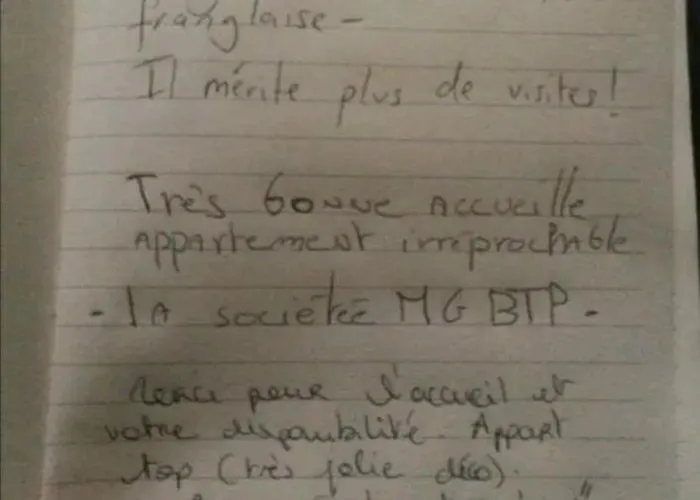 franglaise -
Il mérite plus de visites!
Très bonne accueille
Appartement irréprochable
- LA sociétée MG BTP -
Merci pour l'accueil et
votre disponibilité. Appart
top (très jolie déco).